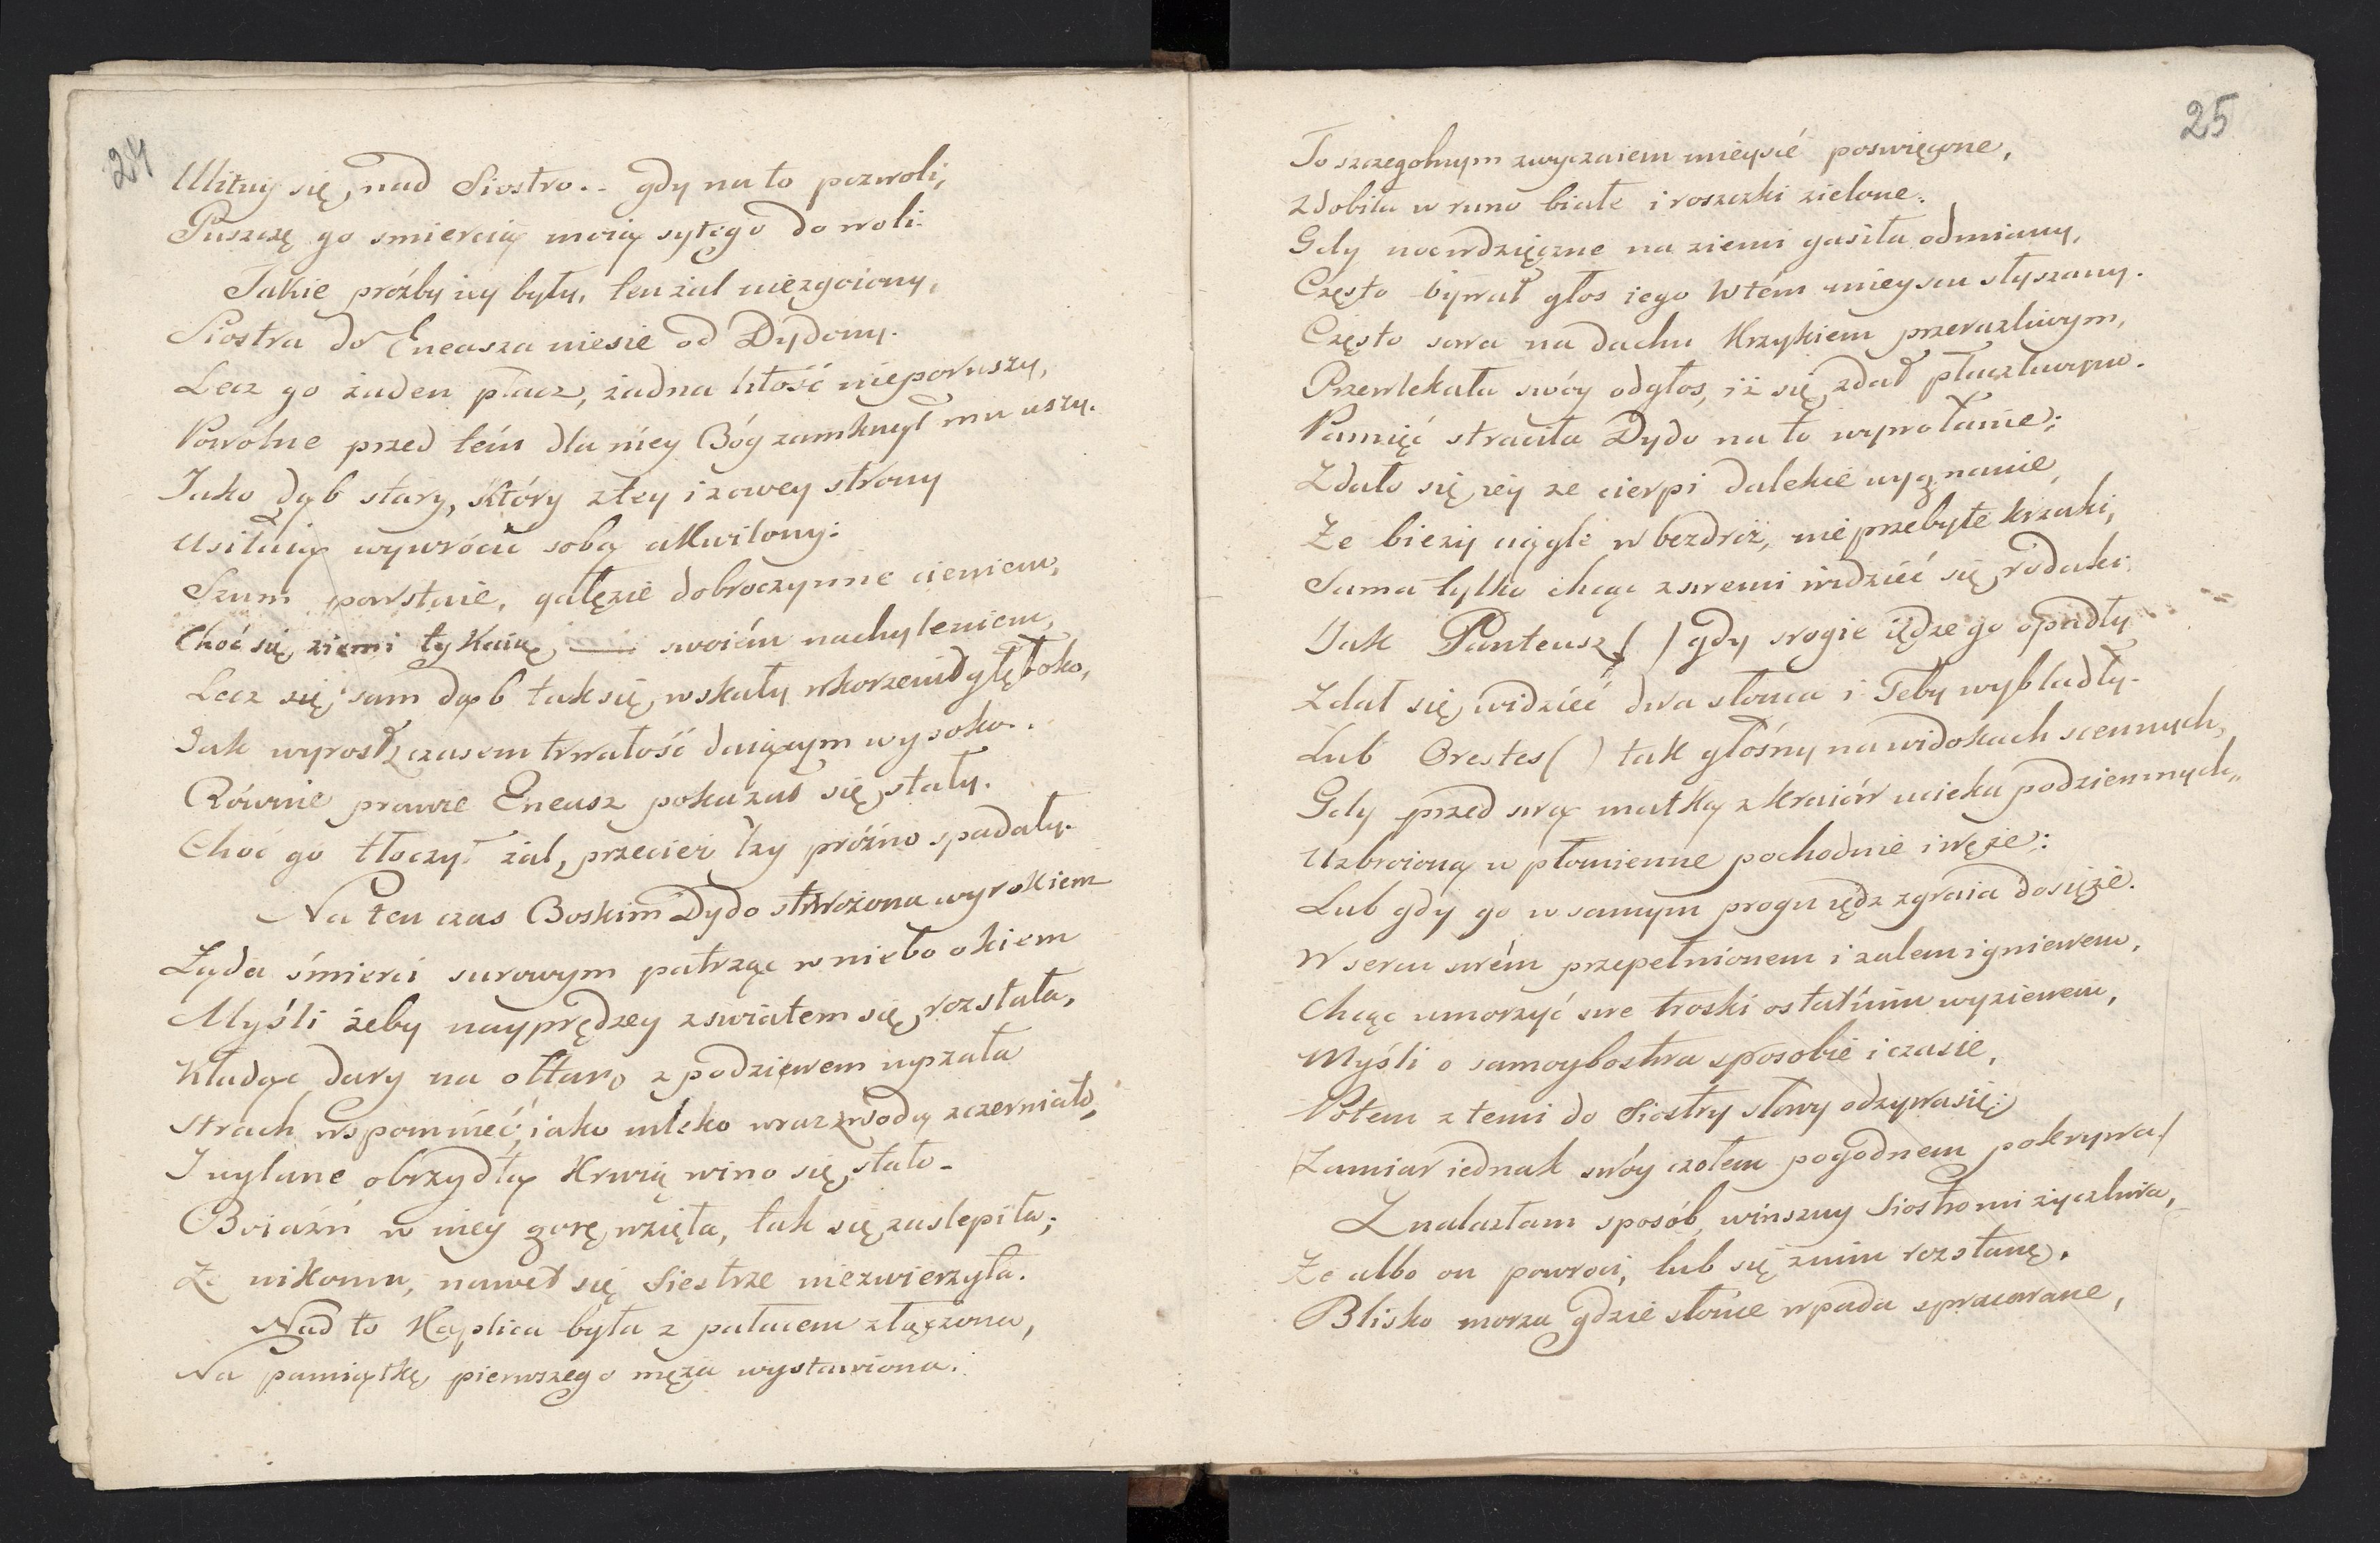 24
Ulituy się nad Siostro.. gdy na to pozwoli,
Puszczę go smiercią moią sytego do woli.
Takie próźby iey były, ten żal niezgoiony,
Siostra do Eneasza niesie od Dydony.
Lecz go żaden płacz, żadna litość nieporuszy,
Powolne przed tém dla niey Bóg zamknął mu uszy.
Jako dąb stary, który ztey i zowey strony
Usiłuią wywrócić sobą akwilony:
Szum powstaie, gałęzie dobroczynne cieniem,
Choć się ziemi tykaią swoiém nachyleniem,
Lecz się sam dąb tak się w skały wkorzenił głęboko,
Jak wyrosł z czasem trwałość daiącym wysoko.
Równie prawie Eneasz pokazał się stały.
Choć go tłoczył żal, przecież łzy próżno spadały.
Na ten czas Boskim Dydo strwożona wyrokiem
Żąda śmierci surowym patrząc w niebo okiem
Myśli żeby nayprędzey z swiatem się rozstała,
Kładąc dary na ołtarz z podziwem uyzała
Strach wspomnieć, iako mleko wraz z wodą zczerniało,
I wylane obrzydłą krwią wino się stało.
Boiaźń w niey górę wzięła, tak się zaslepiła;
Że nikomu, nawet się Siestrze niezwierzyła.
Nad to Kaplica była z pałacem złączona,
Na pamiątkę pierwszego męża wystawiona.
25
To szczegolnym zwyczaiem mieysce poswięcone,
Zdobiła w runo białe i roszczki zielone.
Gdy noc wdzięczne na ziemi gasiła odmiany,
Często bywał głos iego w tém mieyscu słyszany.
Często sowa na dachu krzykiem przeraźliwym,
Przewlekała swóy odgłos, iż się zdał płaczliwym.
Pamięć straciła Dydo na to wywołanie;
Zdało się iey ze cierpi dalekie wygnanie,
Ze bieży ciągle w bezdroż, nie przebyte krzaki,
Sama tylko chcąc z swemi widzieć się rodaki.
Jak Panteusz ( ) gdy srogie iędze go opadły
Zdał się widzieć dwa słonca i Teby wybladły.
Lub Orestes ( ) tak głośny na widokach scennych,
Gdy przed swą matką z kraiów ucieka podziemnych,
Uzbroioną w płomienne pochodnie i węże:
Lub gdy go w samym progu iędz zgraia dosięże.
W sercu swém przepełnionem i zalem i gniewem,
Chcąc umorzyć swe troski ostatniim wyziewem,
Myśli o samoybostwa sposobie i czasie,
Potem z temi do Siostry słowy odzywasię:
/Zamiar iednak swóy czołem pogodnem pokrywa/
Znalazłam sposób, winszuy Siostromi życzliwa,
Że albo on powroci, lub się z nim rozstanę.
Blisko morza gdzie słońce wpada spracowane,